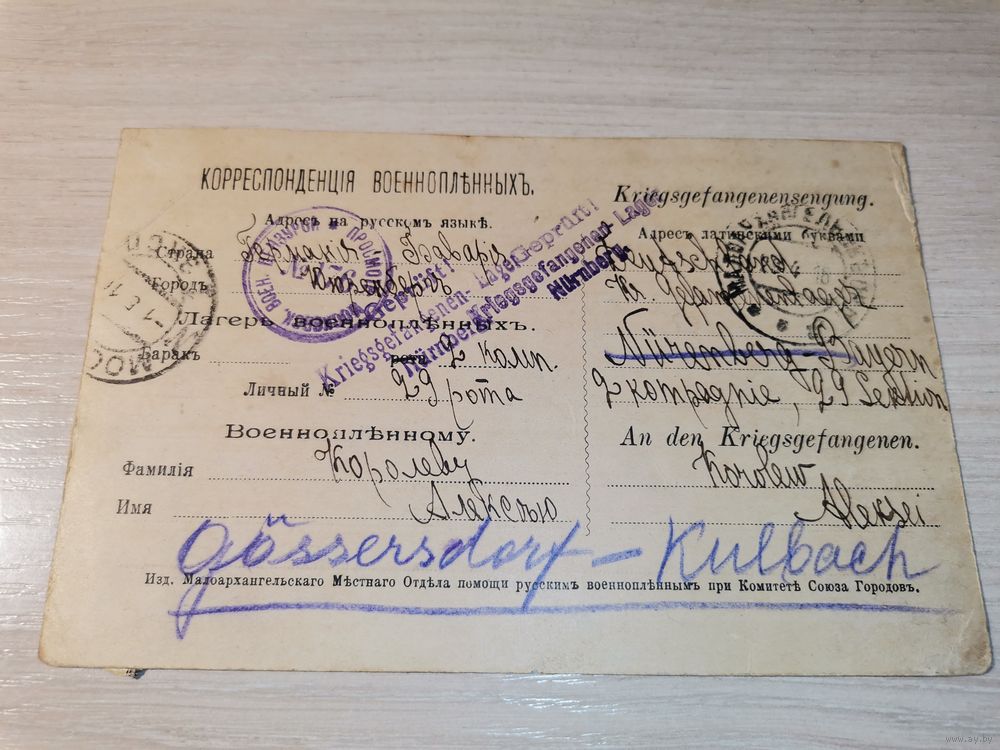 КОРРЕСПОНДЕНЦІЯ ВОЕННОПЛѢННЫХЪ.
Адресъ на русскомъ языкѣ.
Страна Германія Баварія
Городъ Нюренбергъ
Лагерь военноплѣнныхъ.
Баракъ рота 2 комп.
Личный № 29 рота
Военноплѣнному.
Фамилія Королеву
Имя Алексѣю
Kriegsgefangenensengung.
Адресъ латинскими буквами
Deutschland
Nürenberg-Bayern
2 kompagnie, 29 Sektion
An den Kriegsgefangenen.
Korolew
Aleksei
Gössersdorf - Kulbach
Изд. Малоархангельскаго Мѣстнаго Отдѣла помощи русскимъ военноплѣннымъ при Комитетѣ Союза Городовъ.
Geprüft!
Kriegsgefangenen-Lager
Nürnberg
Geprüft!
Kriegsgefangenen-Lager
Nürnberg
МОС
МАЛОАРХАНГЕЛЬ
www.ay.by